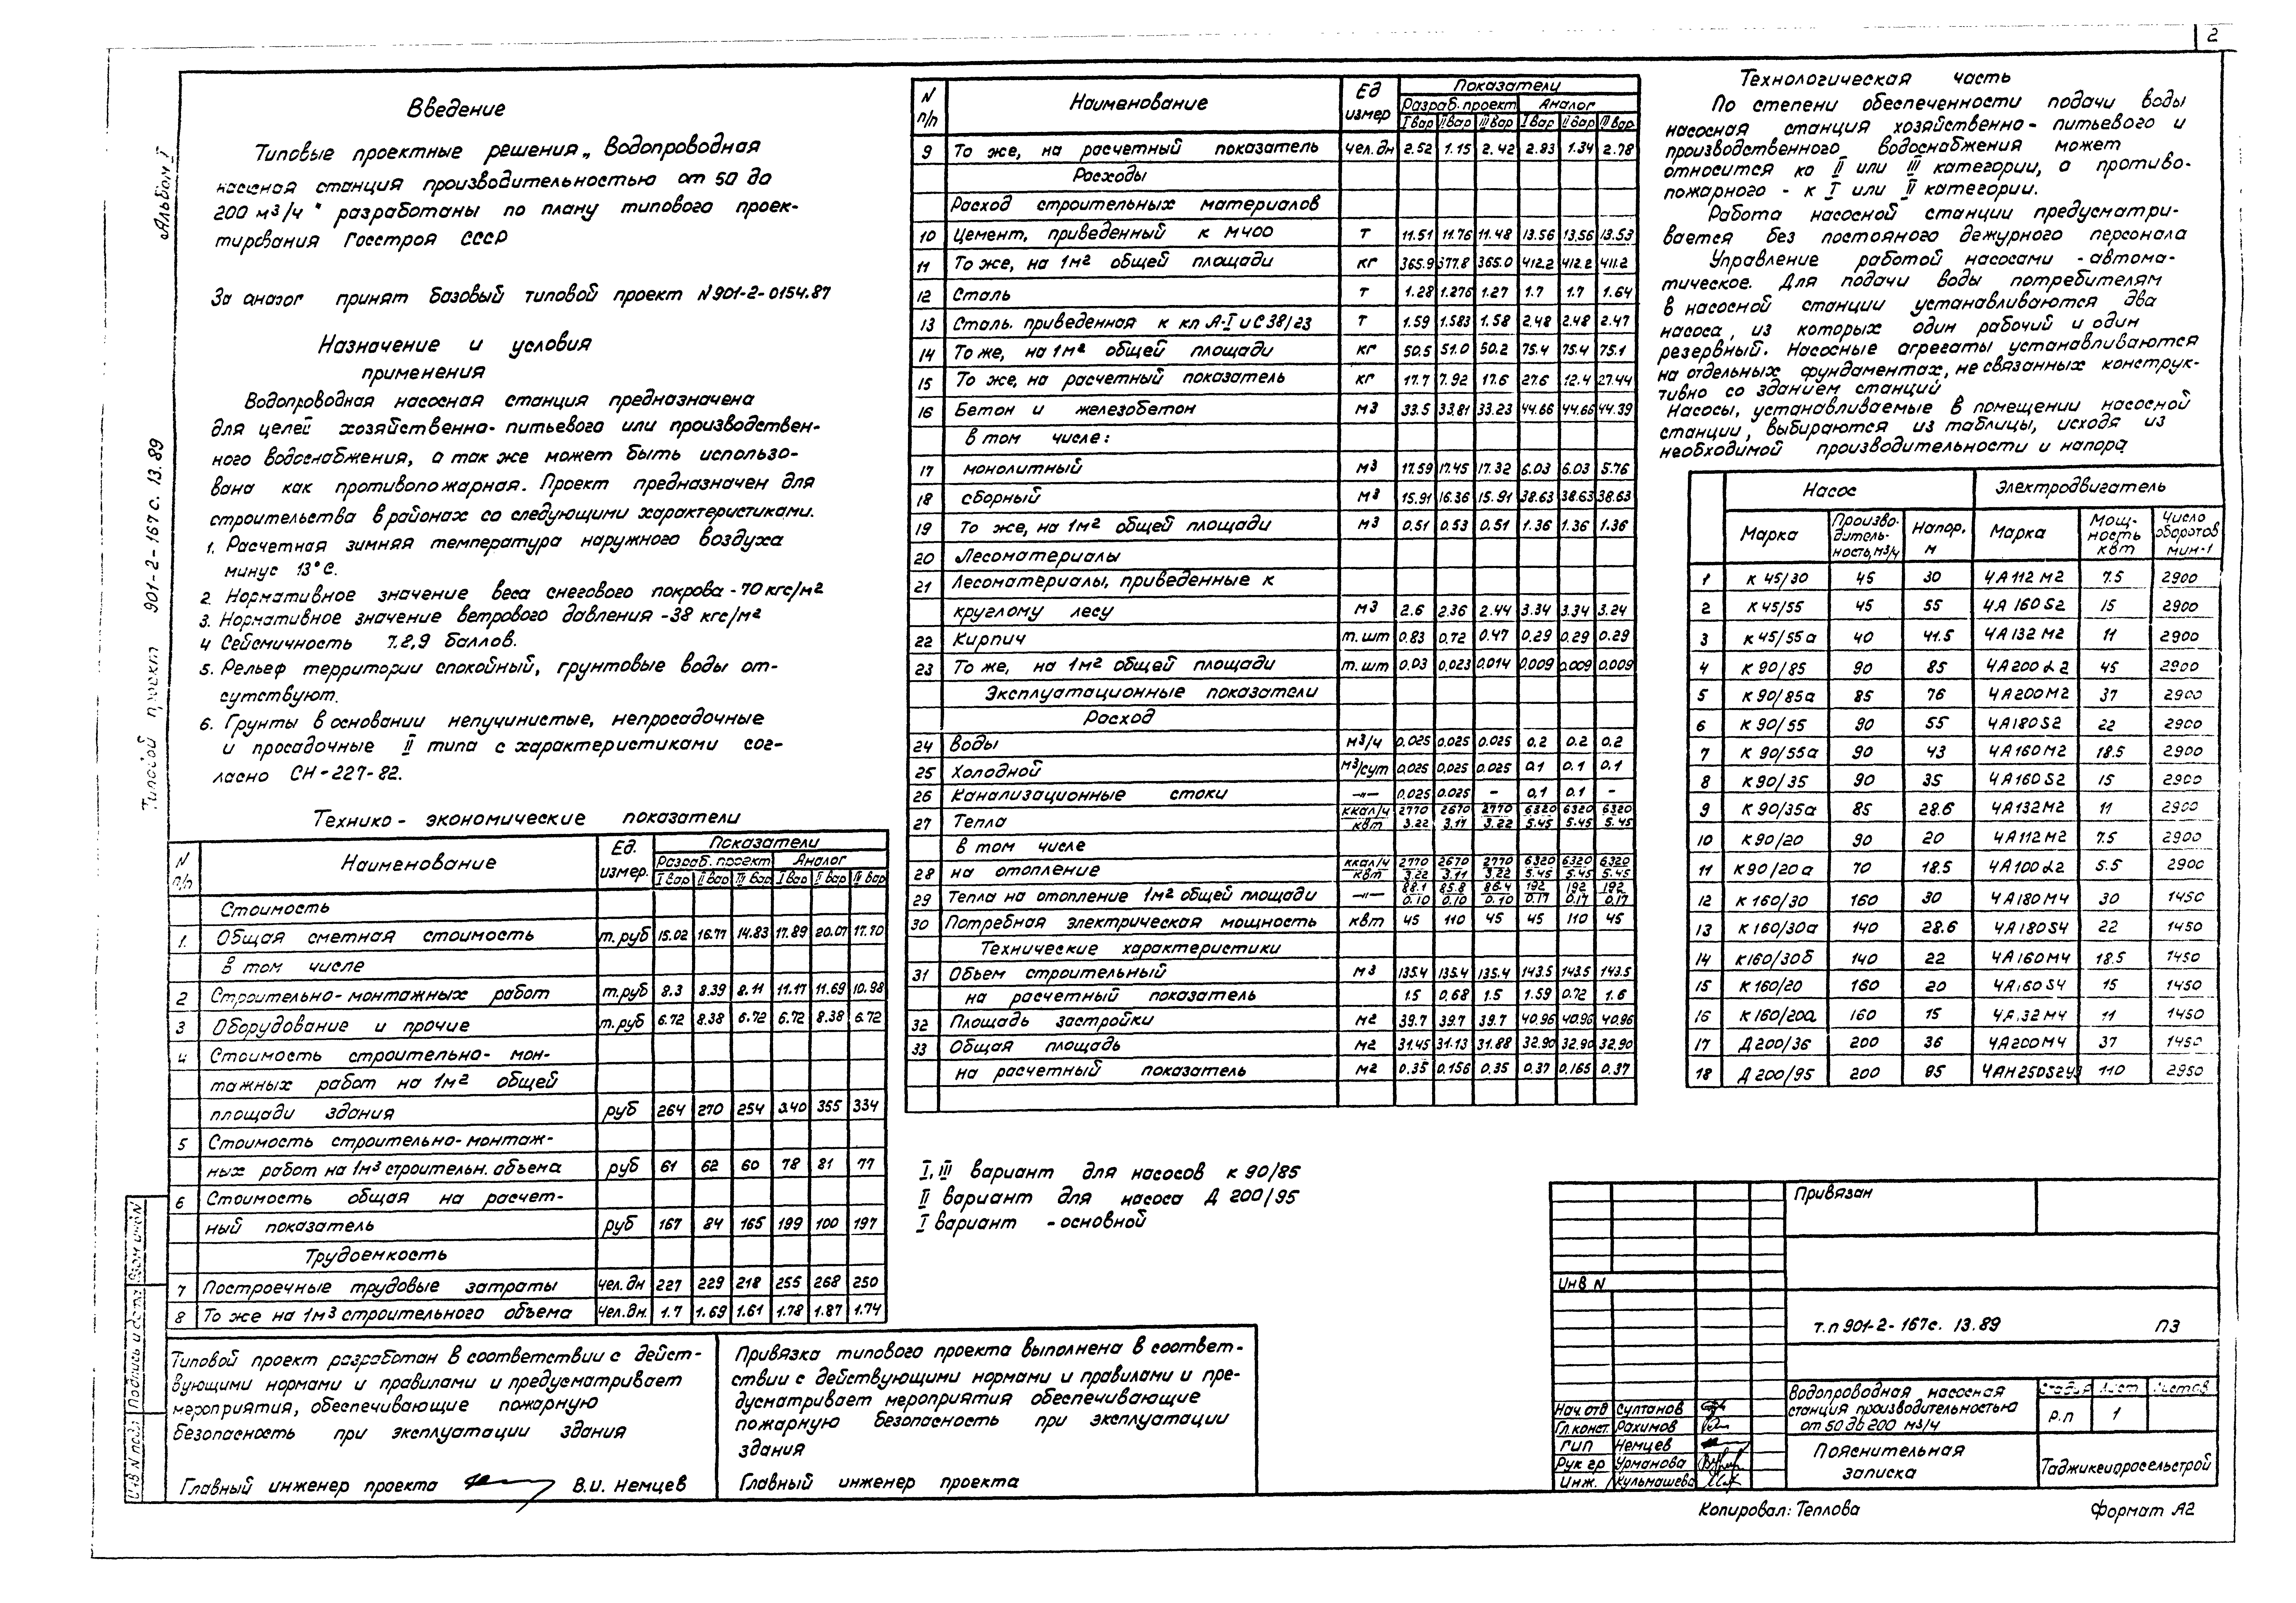 2
Альбом I
Типовой проект 901-2-167с. 13.89
Введение
Типовые проектные решения „Водопроводная
насосная станция производительностью от 50 до
200 м3/ч" разработаны по плану типового проек-
тирования Госстроя СССР
За аналог принят базовый типовой проект N 901-2-0154.87
Назначение и условия
применения
Водопроводная насосная станция предназначена
для целей хозяйственно-питьевого или производствен-
ного водоснабжения, а так же может быть использо-
вана как противопожарная. Проект предназначен для
строительства в районах со следующими характеристиками.
1. Расчетная зимняя температура наружного воздуха
минус 13°С.
2. Нормативное значение веса снегового покрова - 70 кгс/м2
3. Нормативное значение ветрового давления - 38 кгс/м2
4 Сейсмичность 7.8,9 баллов.
5. Рельеф территории спокойный, грунтовые воды от-
сутствуют.
6. Грунты в основании непучинистые, непросадочные
и просадочные II типа с характеристиками сог-
ласно СН-227-82.
Технико-экономические показатели
N п/п Наименование Ед. измер. Показатели
Разраб. проект Аналог
I вар II вар III вар I вар II вар III вар
Стоимость
1. Общая сметная стоимость т.руб 15.02 16.77 14.83 17.89 20.07 17.70
в том числе
2 Строительно-монтажных работ т.руб 8.3 8.39 8.11 11.17 11.69 10.98
3 Оборудование и прочие т.руб 6.72 8.38 6.72 6.72 8.38 6.72
4 Стоимость строительно-мон-
тажных работ на 1м2 общей
площади здания руб 264 270 254 340 355 334
5 Стоимость строительно-монтаж-
ных работ на 1м3 строительн. объема руб 61 62 60 78 81 77
6 Стоимость общая на расчет-
ный показатель руб 167 84 165 199 100 197
Трудоемкость
7 Построечные трудовые затраты чел.дн 227 229 218 255 268 250
8 То же на 1м3 строительного объема чел.дн. 1.7 1.69 1.61 1.78 1.87 1.74
Типовой проект разработан в соответствии с дейст-
вующими нормами и правилами и предусматривает
мероприятия, обеспечивающие пожарную
безопасность при эксплуатации здания
Главный инженер проекта В.И. Немцев
Привязка типового проекта выполнена в соответ-
ствии с действующими нормами и правилами и пре-
дусматривает мероприятия обеспечивающие
пожарную безопасность при эксплуатации
здания
Главный инженер проекта
N п/п Наименование Ед измер Показатели
Разраб. проект Аналог
I вар II вар III вар I вар II вар III вар
9 То же, на расчетный показатель чел.дн 2.52 1.15 2.42 2.83 1.34 2.78
Расходы
Расход строительных материалов
10 Цемент, приведенный к М400 т 11.51 11.76 11.48 13.56 13.56 13.53
11 То же, на 1м2 общей площади кг 365.9 377.8 365.0 412.2 412.2 411.2
12 Сталь т 1.28 1.276 1.27 1.7 1.7 1.64
13 Сталь. приведенная к кл А-I и С 38/23 т 1.59 1.583 1.58 2.48 2.48 2.47
14 То же, на 1м2 общей площади кг 50.5 51.0 50.2 75.4 75.4 75.1
15 То же, на расчетный показатель кг 17.7 7.92 17.6 27.6 12.4 27.44
16 Бетон и железобетон м3 33.5 33.81 33.23 44.66 44.66 44.39
в том числе:
17 монолитный м3 17.59 17.45 17.32 6.03 6.03 5.76
18 сборный м3 15.91 16.36 15.91 38.63 38.63 38.63
19 То же, на 1м2 общей площади м3 0.51 0.53 0.51 1.36 1.36 1.36
20 Лесоматериалы
21 Лесоматериалы, приведенные к
круглому лесу м3 2.6 2.36 2.44 3.34 3.34 3.24
22 Кирпич т.шт 0.83 0.72 0.47 0.29 0.29 0.29
23 То же, на 1м2 общей площади т.шт 0.03 0.023 0.014 0.009 0.009 0.009
Эксплуатационные показатели
Расход
24 воды м3/ч 0.025 0.025 0.025 0.2 0.2 0.2
25 Холодной м3/сут 0.025 0.025 0.025 0.1 0.1 0.1
26 Канализационные стоки —"— 0.025 0.025 - 0.1 0.1 -
27 Тепла ккал/ч 2770 2670 2770 6320 6320 6320
квт 3.22 3.11 3.22 5.45 5.45 5.45
в том числе
28 на отопление ккал/ч 2770 2670 2770 6320 6320 6320
квт 3.22 3.11 3.22 5.45 5.45 5.45
29 Тепла на отопление 1м2 общей площади —"— 88.1 85.8 86.4 192 192 192
0.10 0.10 0.10 0.17 0.17 0.17
30 Потребная электрическая мощность квт 45 110 45 45 110 45
Технические характеристики
31 Объем строительный м3 135.4 135.4 135.4 143.5 143.5 143.5
на расчетный показатель 1.5 0.68 1.5 1.59 0.72 1.6
32 Площадь застройки м2 39.7 39.7 39.7 40.96 40.96 40.96
33 Общая площадь м2 31.45 31.13 31.88 32.90 32.90 32.90
на расчетный показатель м2 0.35 0.156 0.35 0.37 0.165 0.37
I, III вариант для насосов К 90/85
II вариант для насоса Д 200/95
I вариант - основной
Технологическая часть
По степени обеспеченности подачи воды
насосная станция хозяйственно-питьевого и
производственного водоснабжения может
относится ко II или III категории, а противо-
пожарного - к I или II категории.
Работа насосной станции предусматри-
вается без постояного дежурного персонала
Управление работой насосами - автома-
тическое. Для подачи воды потребителям
в насосной станции устанавливаются два
насоса, из которых один рабочий и один
резервный. Насосные агрегаты устанавливаются
на отдельных фундаментах, не связанных конструк-
тивно со зданием станций
Насосы, устанавливаемые в помещении насосной
станции, выбираются из таблицы, исходя из
необходимой производительности и напора
Насос Электродвигатель
Марка Произво-дитель-ность, м3/ч Напор, м Марка Мощ-ность квт Число оборотов мин-1
1 К 45/30 45 30 4А112М2 7.5 2900
2 К 45/55 45 55 4А 160S2 15 2900
3 К 45/55а 40 41.5 4А132М2 11 2900
4 К 90/85 90 85 4А200L2 45 2900
5 К 90/85а 85 76 4А200М2 37 2900
6 К 90/55 90 55 4А180S2 22 2900
7 К 90/55а 90 43 4А160М2 18.5 2900
8 К 90/35 90 35 4А160S2 15 2900
9 К 90/35а 85 28.6 4А132М2 11 2900
10 К 90/20 90 20 4А112М2 7.5 2900
11 К90/20а 70 18.5 4А100L2 5.5 2900
12 К 160/30 160 30 4А180М4 30 1450
13 К 160/30а 140 28.6 4А180S4 22 1450
14 К160/30б 140 22 4А160М4 18.5 1450
15 К 160/20 160 20 4А160S4 15 1450
16 К 160/20а 160 15 4А132М4 11 1450
17 Д 200/36 200 36 4А200М4 37 1450
18 Д 200/95 200 95 4АН250S2У3 110 2950
Привязан
Инв N
т.п 901-2-167с. 13.89 ПЗ
Нач.отд Султанов
Гл.конст. Рахимов
ГИП Немцев
Рук гр Урманова
Инж. Кульмашева
Водопроводная насосная
станция производительностью
от 50 до 200 м3/ч
Стадия Лист Листов
Р.П 1
Пояснительная
записка
Таджикгипросельстрой
Копировал: Теплова Формат А2
Инв N подл Подпись и дата Взам инв N